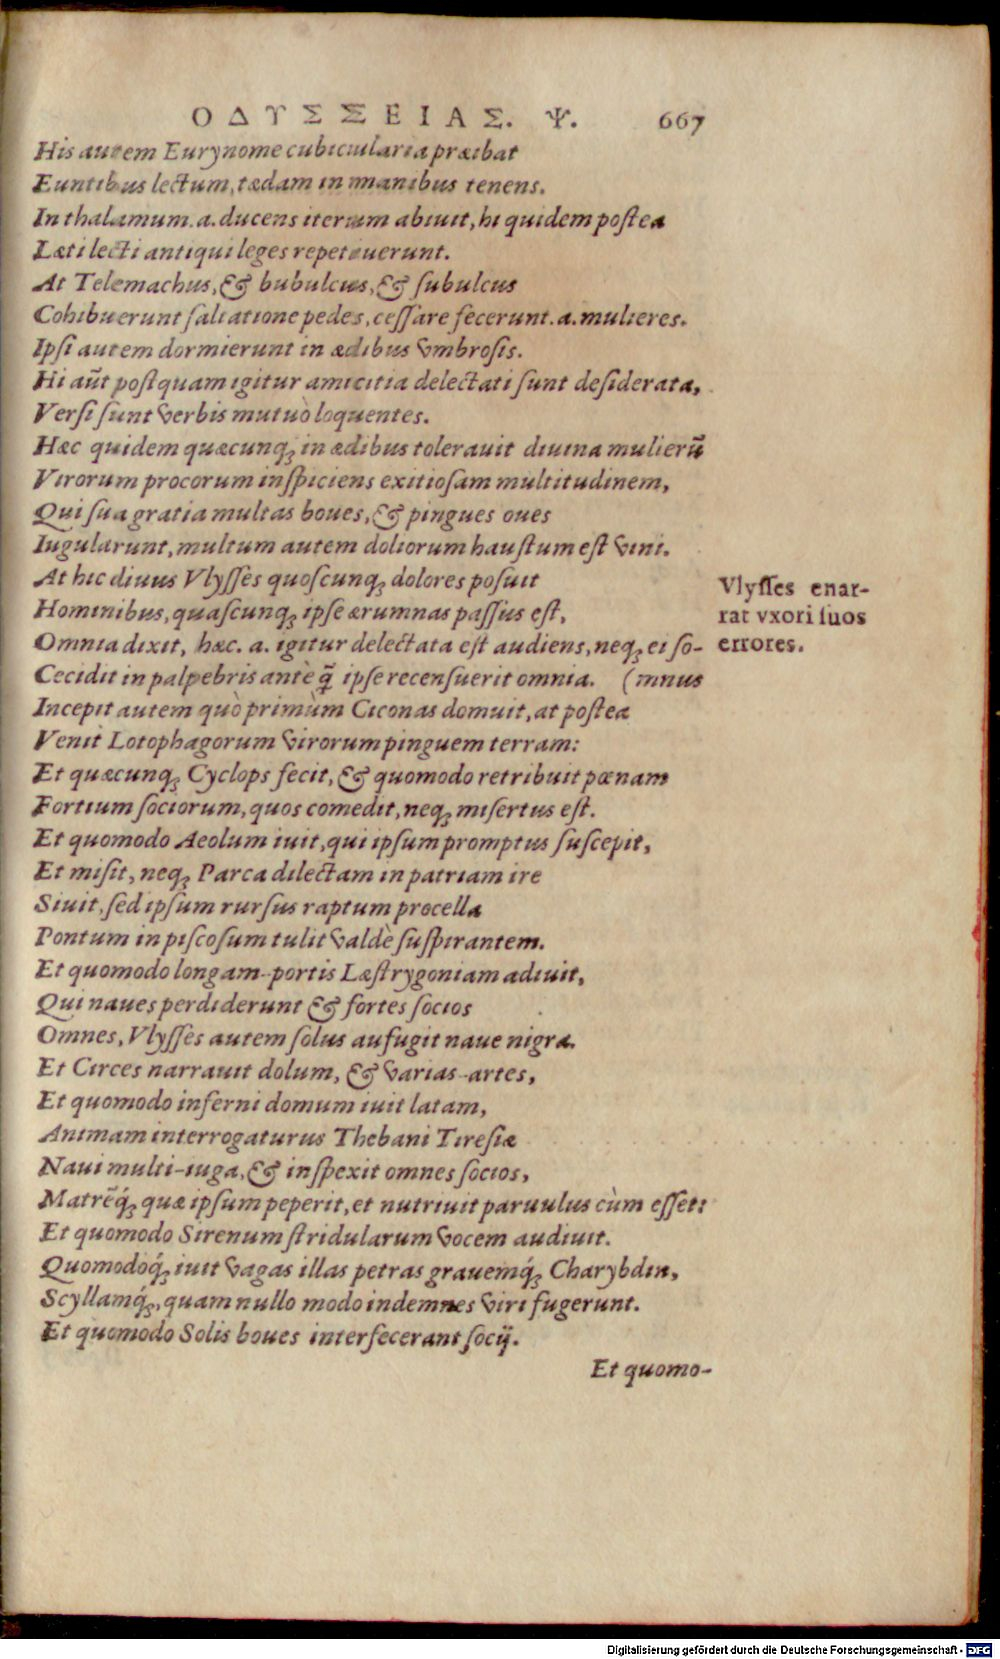 ΟΔΥΣΣΕΙΑΣ. Ψ. 667
His autem Eurynome cubicularia præibat
Euntibus lectum, tædam in manibus tenens.
In thalamum .a. ducens iterum abiuit, hi quidem postea
Læti lecti antiqui leges repetiuerunt.
At Telemachus, & bubulcus, & subulcus
Cohibuerunt saltatione pedes, cessare fecerunt .a. mulieres.
Ipsi autem dormierunt in ædibus vmbrosis.
Hi aūt postquam igitur amicitia delectati sunt desiderata,
Versi sunt verbis mutuò loquentes.
Hæc quidem quæcunq; in ædibus tolerauit diuina mulierū
Virorum procorum inspiciens exitiosam multitudinem,
Qui sua gratia multas boues, & pingues oues
Iugularunt, multum autem doliorum haustum est vini.
At hic diuus Vlysses quoscunq; dolores posuit
Hominibus, quascunq; ipse ærumnas passus est,
Omnia dixit, hæc .a. igitur delectata est audiens, neq; ei so-
Cecidit in palpebris antè q̃ ipse recensuerit omnia. (mnus
Incepit autem quò primùm Ciconas domuit, at postea
Venit Lotophagorum virorum pinguem terram:
Et quæcunq; Cyclops fecit, & quomodo retribuit pœnam
Fortium sociorum, quos comedit, neq; misertus est.
Et quomodo Aeolum iuit, qui ipsum promptus suscepit,
Et misit, neq; Parca dilectam in patriam ire
Siuit, sed ipsum rursus raptum procella
Pontum in piscosum tulit valdè suspirantem.
Et quomodo longam-portis Læstrygoniam adiuit,
Qui naues perdiderunt & fortes socios
Omnes, Vlysses autem solus aufugit naue nigra.
Et Circes narrauit dolum, & varias-artes,
Et quomodo inferni domum iuit latam,
Animam interrogaturus Thebani Tiresiæ
Naui multi-iuga, & inspexit omnes socios,
Matrēq́; quæ ipsum peperit, et nutriuit paruulus cùm esset:
Et quomodo Sirenum stridularum vocem audiuit.
Quomodoq́; iuit vagas illas petras grauemq́; Charybdin,
Scyllamq́;, quam nullo modo indemnes viri fugerunt.
Et quomodo Solis boues interfecerant socij.
Et quomo-
Vlysses enar-
rat vxori suos
errores.
Digitalisierung gefördert durch die Deutsche Forschungsgemeinschaft - DFG